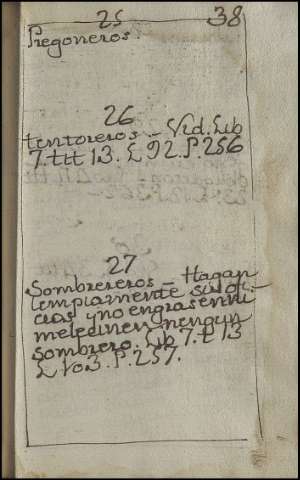 25 38
Pregoneros.
26
tentoreros - Vid. Lib
7. tit 13. L 92. P. 256
27
Sombrereros - Hagan
limpiamente sus ofi-
cios y no engrasen ni
meleeinen nengun
sombrero. Lib 7. t 13
L 103. P. 257.